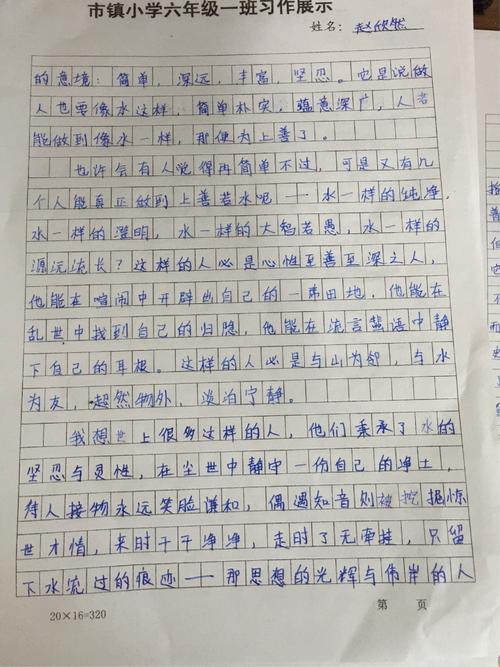 市镇小学六年级一班习作展示
姓名：赵欣然
的意境：简单，深远，丰富，坚忍。也是说做
人也要像水这样，简单朴实，蕴意深广，人若
能做到像水一样，那便为上善了。
也许会有人说得再简单不过，可是又有几
个人能真正做到上善若水呢——水一样的纯净，
水一样的澄明，水一样的大智若愚，水一样的
源远流长？这样的人必是心性至善至深之人，
他能在喧闹中开辟出自己的一弗田地，他能在
乱世中找到自己的归隐，他能在流言蜚语中静
下自己的耳根。这样的人必是与山为邻，与水
为友，超然物外，淡泊宁静。
我想世上很多这样的人，他们秉承了水的
坚忍与灵性，在尘世中静守一份自己的净土，
待人接物永远笑脸谦和，偶遇知音则被挖掘惊
世才情，来时干干净净，走时了无牵挂，只留
下水流过的痕迹——那思想的光辉与伟岸的人
20×16=320
第 页